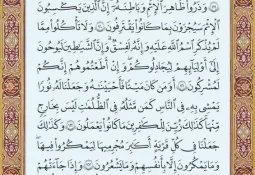 وَذَرُوا۟ ظَـٰهِرَ ٱلْإِثْمِ وَبَاطِنَهُۥٓ إِنَّ ٱلَّذِينَ يَكْسِبُونَ
ٱلْإِثْمَ سَيُجْزَوْنَ بِمَا كَانُوا۟ يَقْتَرِفُونَ وَلَا تَأْكُلُوا۟ مِمَّا
لَمْ يُذْكَرِ ٱسْمُ ٱللَّهِ عَلَيْهِ وَإِنَّهُۥ لَفِسْقٌ وَإِنَّ ٱلشَّيَـٰطِينَ لَيُوحُونَ
إِلَىٰٓ أَوْلِيَآئِهِمْ لِيُجَـٰدِلُوكُمْ وَإِنْ أَطَعْتُمُوهُمْ إِنَّكُمْ
لَمُشْرِكُونَ أَوَمَن كَانَ مَيْتًا فَأَحْيَيْنَـٰهُ وَجَعَلْنَا لَهُۥ نُورًا
يَمْشِى بِهِۦ فِى ٱلنَّاسِ كَمَن مَّثَلُهُۥ فِى ٱلظُّلُمَـٰتِ لَيْسَ بِخَارِجٍ
مِّنْهَا كَذَٰلِكَ زُيِّنَ لِلْكَـٰفِرِينَ مَا كَانُوا۟ يَعْمَلُونَ وَكَذَٰلِكَ
جَعَلْنَا فِى كُلِّ قَرْيَةٍ أَكَـٰبِرَ مُجْرِمِيهَا لِيَمْكُرُوا۟ فِيهَا
وَمَا يَمْكُرُونَ إِلَّا بِأَنفُسِهِمْ وَمَا يَشْعُرُونَ وَإِذَا جَآءَتْهُمْ